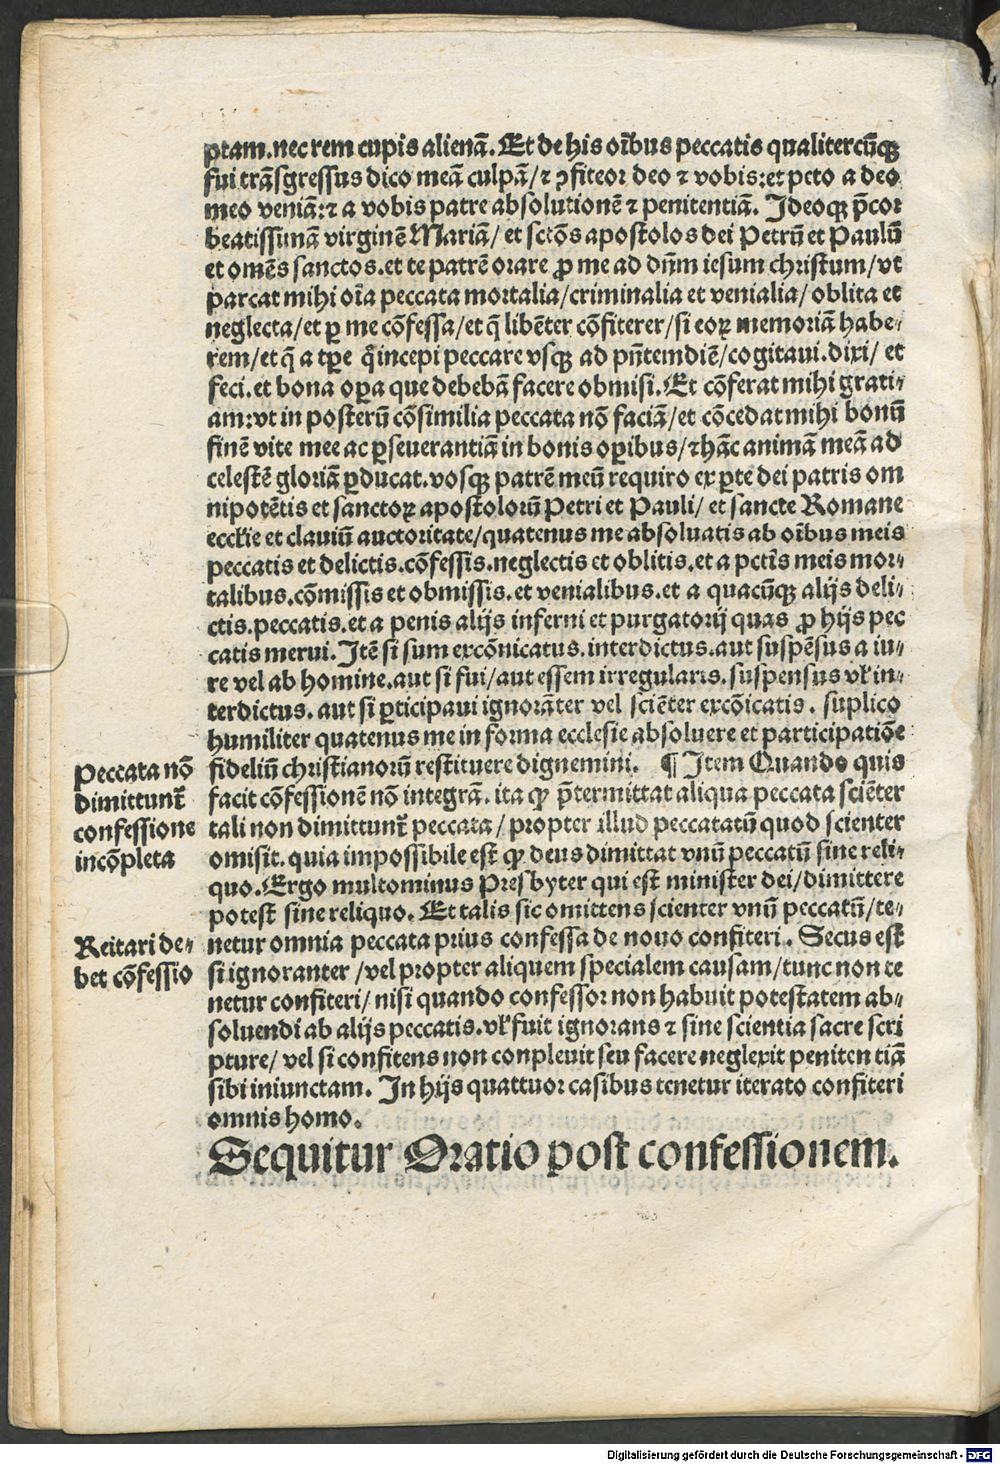 ptam.nec rem cupis alienã. Et de his oĩbus peccatis qualitercũqꝫ
fui trãsgressus dico meã culpã/⁊ ꝯfiteor deo ⁊ vobis:et peto a deo
meo veniã:⁊ a vobis patre absolutionẽ ⁊ penitentiã. Ideoqꝫ p̃cor
beatissimã virginẽ Mariã/ et sctõs apostolos dei Petrũ et Paulũ
et omẽs sanctos.et te patrẽ orare ꝓ me ad dñm iesum christum/vt
parcat mihi oĩa peccata mortalia/criminalia et venialia/ oblita et
neglecta/et ꝑ me cõfessa/et q̃ libẽter cõfiterer/si eoꝝ memoriã habe⸗
rem/et q̃ a tꝑe q̃ incepi peccare vsqꝫ ad pñtem diẽ/cogitaui.dixi/ et
feci.et bona oꝑa que debebã facere obmisi. Et cõferat mihi grati⸗
am:vt in posterũ cõsimilia peccata nõ faciã/et cõcedat mihi bonũ
finẽ vite mee ac ꝑseuerantiã in bonis oꝑibus/⁊ hãc animã meã ad
celestẽ gloriã ꝑducat.vosqꝫ patrẽ meũ requiro ex ꝑte dei patris om
nipotẽtis et sanctoꝝ apostolorũ Petri et Pauli/ et sancte Romane
eccłie et clauiũ auctoritate/quatenus me absoluatis ab oĩbus meis
peccatis et delictis.cõfessis.neglectis et oblitis.et a pctĩs meis mor⸗
talibus.cõmissis et obmissis.et venialibus.et a quacũqꝫ alijs deli⸗
ctis.peccatis.et a penis alijs inferni et purgatorij quas ꝓ hijs pec
catis merui. Itẽ si sum excõnicatus.interdictus.aut suspẽsus a iu⸗
re vel ab homine.aut si fui/aut essem irregularis.suspensus vł in⸗
terdictus. aut si ꝑticipaui ignorãter vel sciẽter excõicatis. suplico
humiliter quatenus me in forma ecclesie absoluere et participatiõe
fideliũ christianorũ restituere dignemini. ¶ Item Quando quis
facit cõfessionẽ nõ integrã. ita ꝙ p̃termittat aliqua peccata sciẽter
tali non dimittunt᷑ peccata/ propter illud peccatatũ quod scienter
omisit. quia impossibile est ꝙ deus dimittat vnũ peccatũ sine reli⸗
quo. Ergo multominus Presbyter qui est minister dei/dimittere
potest sine reliquo. Et talis sic omittens scienter vnũ peccatũ/te⸗
netur omnia peccata prius confessa de nouo confiteri. Secus est
si ignoranter /vel propter aliquem specialem causam/tunc non te
netur confiteri/ nisi quando confessor non habuit potestatem ab⸗
soluendi ab alijs peccatis.vł fuit ignorans ⁊ sine scientia sacre scri
pture/ vel si confitens non conpleuit seu facere neglexit peniten tiã
sibi iniunctam. In hijs quattuor casibus tenetur iterato confiteri
omnis homo.
Sequitur Oratio post confessionem.
Peccata nõ
dimittunt᷑
confessione
incõpleta
Reitari de⸗
bet cõfessio
Digitalisierung gefördert durch die Deutsche Forschungsgemeinschaft - DFG